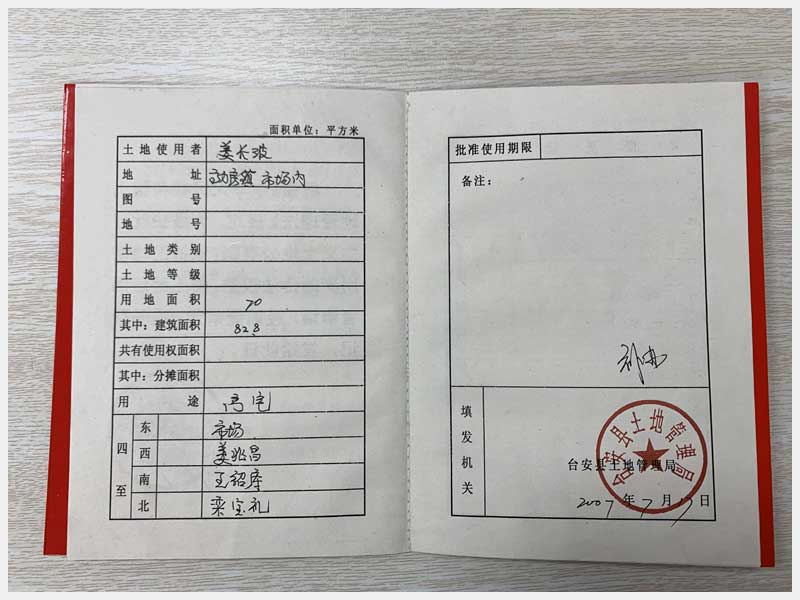 面积单位：平方米
土地使用者 姜长波
地址 市场内
图号
地号
土地类别
土地等级
用地面积 70
其中：建筑面积 82.8
共有使用权面积
其中：分摊面积
用途 商宅
四至
东 市场
西 姜兆昌
南 王绍库
北 栾宝礼
批准使用期限
备注：
填发机关
台安县土地管理局
台安县土地管理局
2007年7月17日